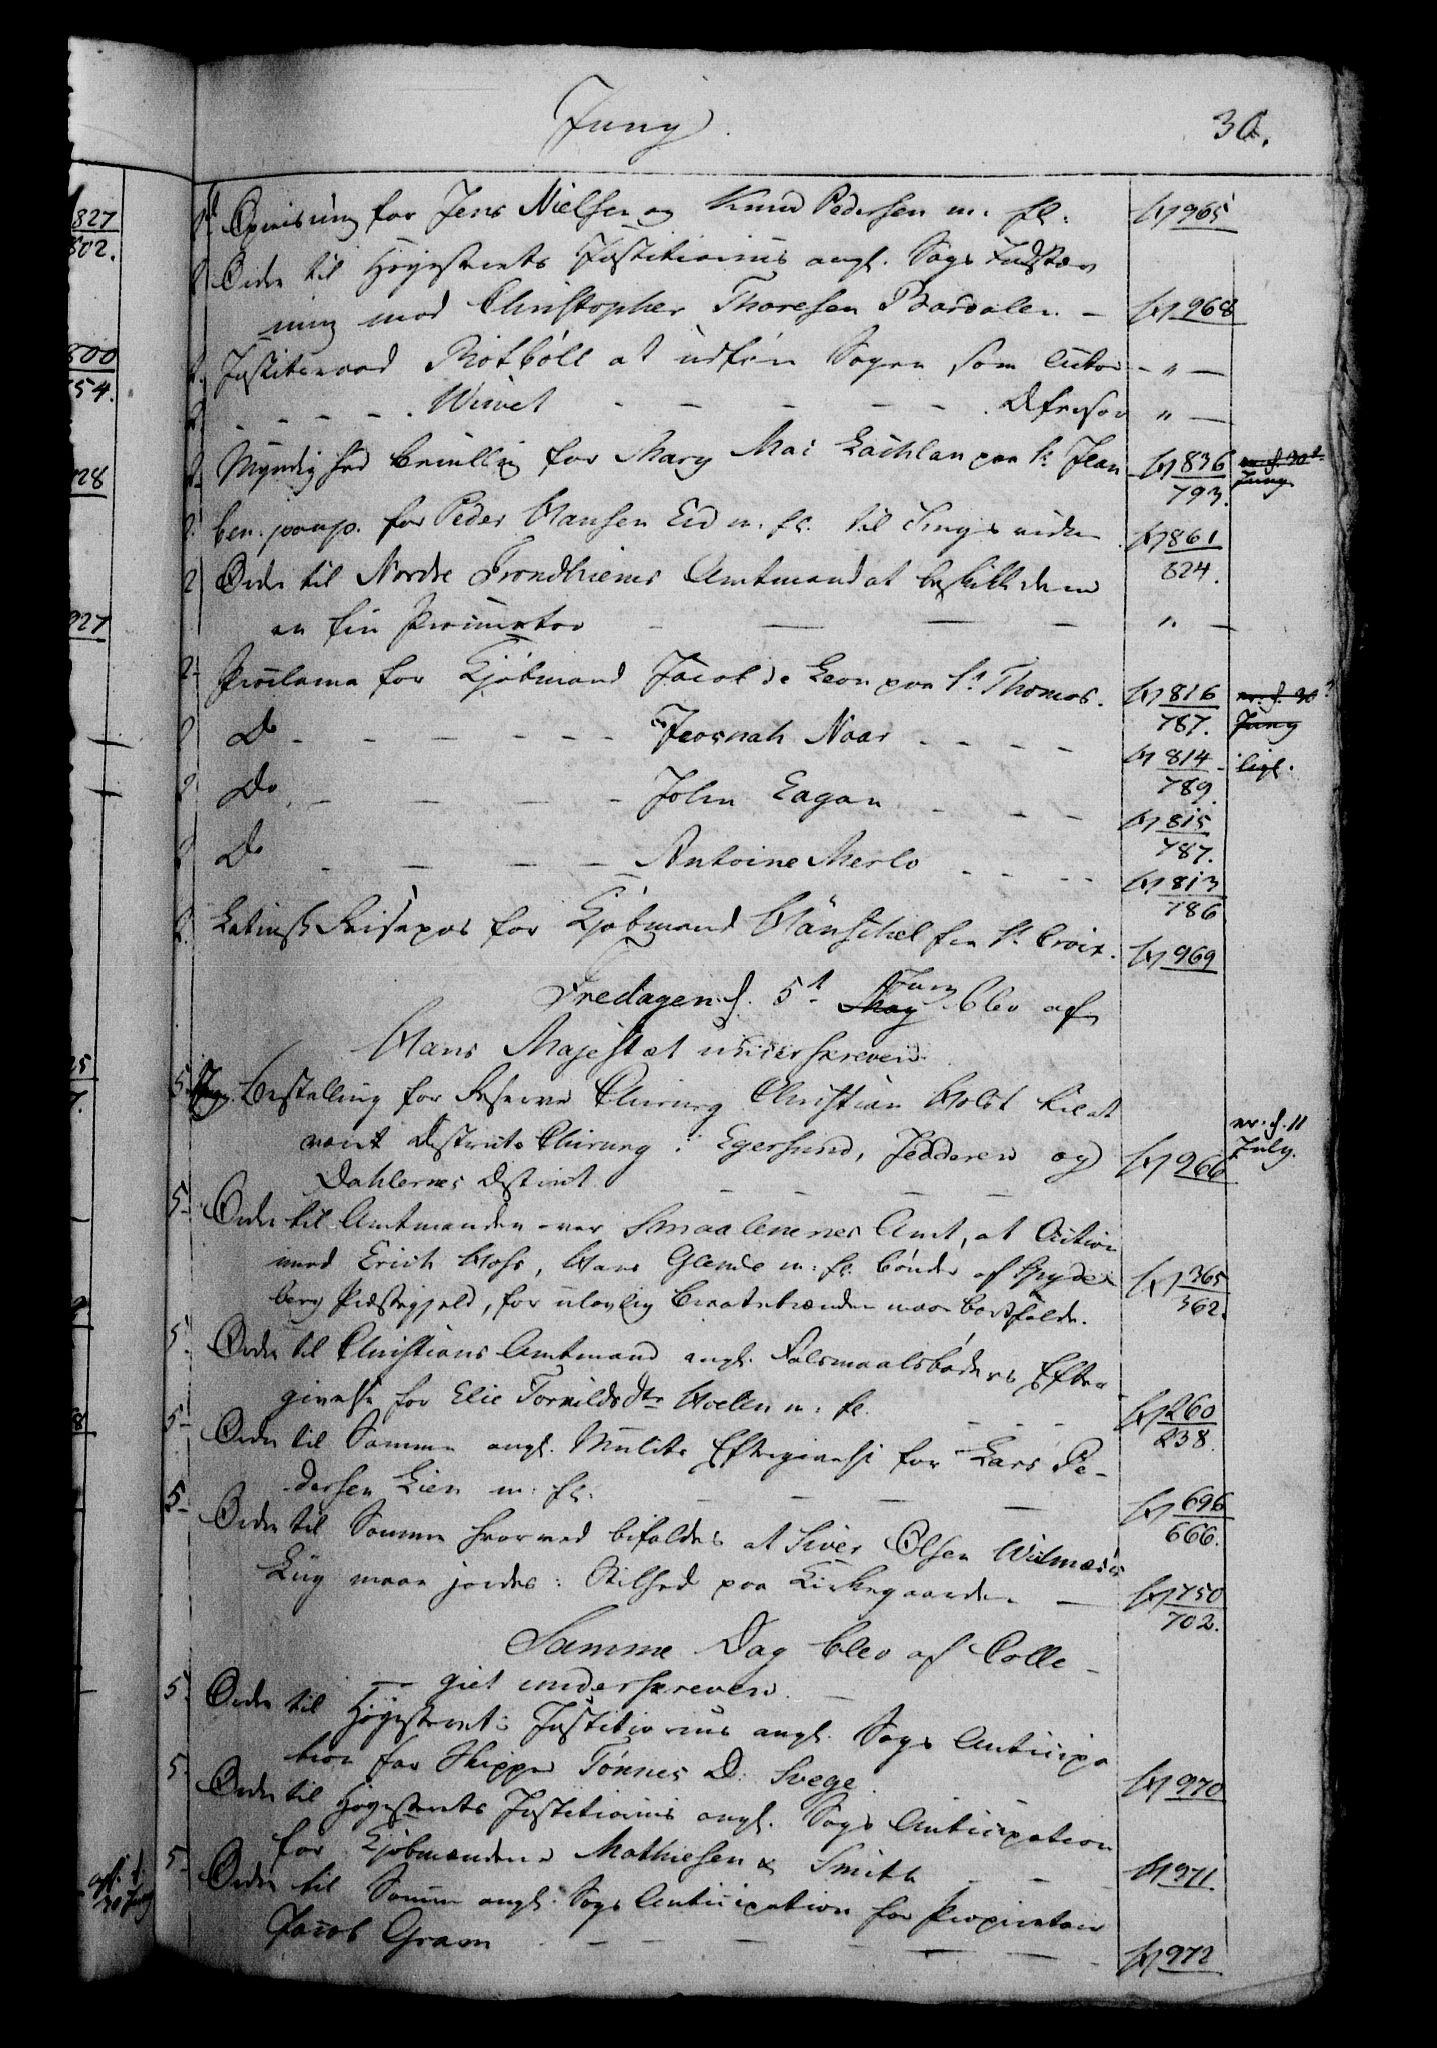 Juny.
30.
827
802.
2 Opreisning for Jens Nielsen og Knud Pedersen m. fl. 965
2 Ordre til Höyesterets Justitiarius angl. Sags Indstæv
ning mod Christopher Thoresen Bardalen — 968
800
754.
2. Justitsraad Rotböll at udföre Sagen som Actor — " —
2 — — — Wiwet — — — — Defensor " —
2. Myndigheds Bevilling for Mary Mac Lachlan paa St Jean — 836 ex. d. 30t
793. Juny
28
2. ben. paup. for Peder Hansen Eid m. fl. til Tings vidne 861
2 Ordre til Nordre Trondhiems Amtmand at beskikke dem 824.
en fri Procurator — — — — ". —
927
2. Proclama for Kjöbmand Jacob de Leon paa St Thomas. 816
787. Juny
2 Do — — — — — Jeosnah Naar — — — 814 ligl.
789.
2. Do — — — — John Eagan — — — 815
787.
2 Do — — — — Antoine Merlo — — — 813
786
2. Latinsk Reisepas for Kjöbmand Hänschel fra St Croix. 969
Fredagen d. 5t May Juny blev af
Hans Majestæt underskreven
5 Juny. Bestalling for Reserve Chirurg Christian Holst til at
være Districts Chirurg i Egersund, Jedderen og 966 ex. d. 11
July.
Dahlernes District — — — —
5- Ordre til Amtmanden over Smaalenenes Amt, at Action
mod Erich Hoff, Hans Glende m. fl. Bönder af Spyde 365
berg Præstegjeld, for ulovlig Brændeviinsbrænden maae bortfalde. 362.
5. Ordre til Christians Amtmand angl. Leiermaalsböders Efter
givelse for Elie Torkildsdtr Hoelen m. fl. — — — 260
238.
5- Ordre til Samme angl. Mulcts Eftergivelse for Lars Pe-
dersen Lien m. fl. — — — — 696
666.
5- Ordre til Samme hvorved bifaldes at Siver Olsen
Liig maae jordes i Stilhed paa Kirkegaarden — 750
702.
Samme Dag blev af Colle-
giet underskreven. —
5. Ordre til Höyesterets Justitiarius angl. Sags Anticipa
tion for Skipper Tönnes D. Svege. 970
5. Ordre til Höyesterets Justitiarius angl. Sags Anticipation
for Kjöbmændene Mathiesen & Smith — — — 971.
5- Ordre til Samme angl. Sags Anticipation for Proprietair
Jacob Gram — — — — — 972